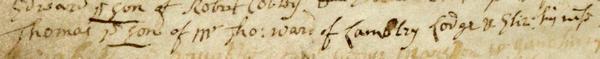 Edward ye Son of Robert
Thomas ye Son of Mr Tho: Ward of Lambley Lodge & Eliz: his wife